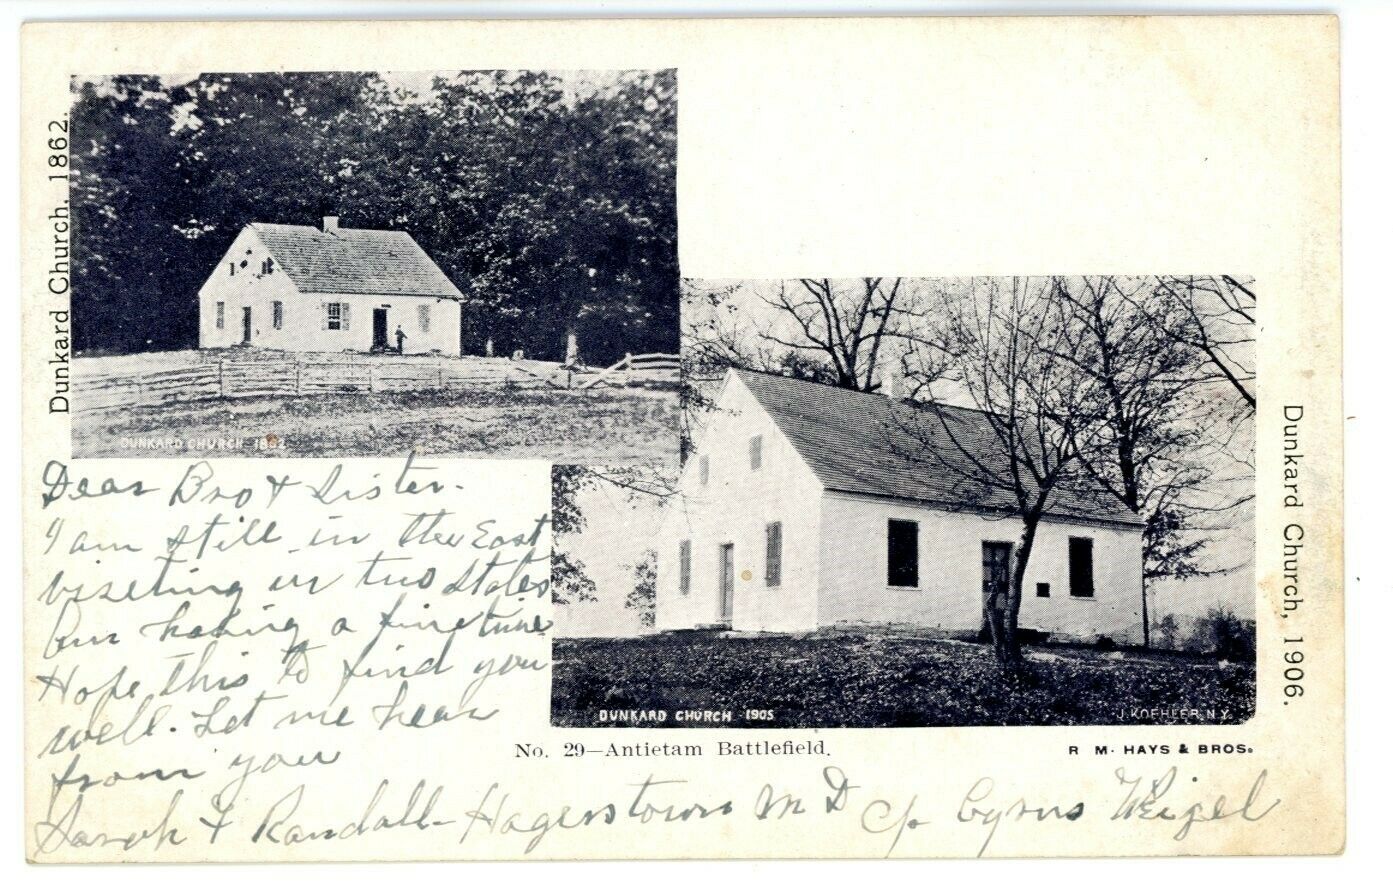 Dunkard Church, 1862.
DUNKARD CHURCH 1862
Dear Bro & Sister.
I am still in the East
viseting in two States
am having a fine time
Hope this to find you
well. Let me hear
from you
Sarah & Randall - Hagerstown MD c/o Cyrus Weigel
DUNKARD CHURCH 1905
J. KOEHLER, N.Y.
No. 29—Antietam Battlefield.
R M. HAYS & BROS.
Dunkard Church, 1906.